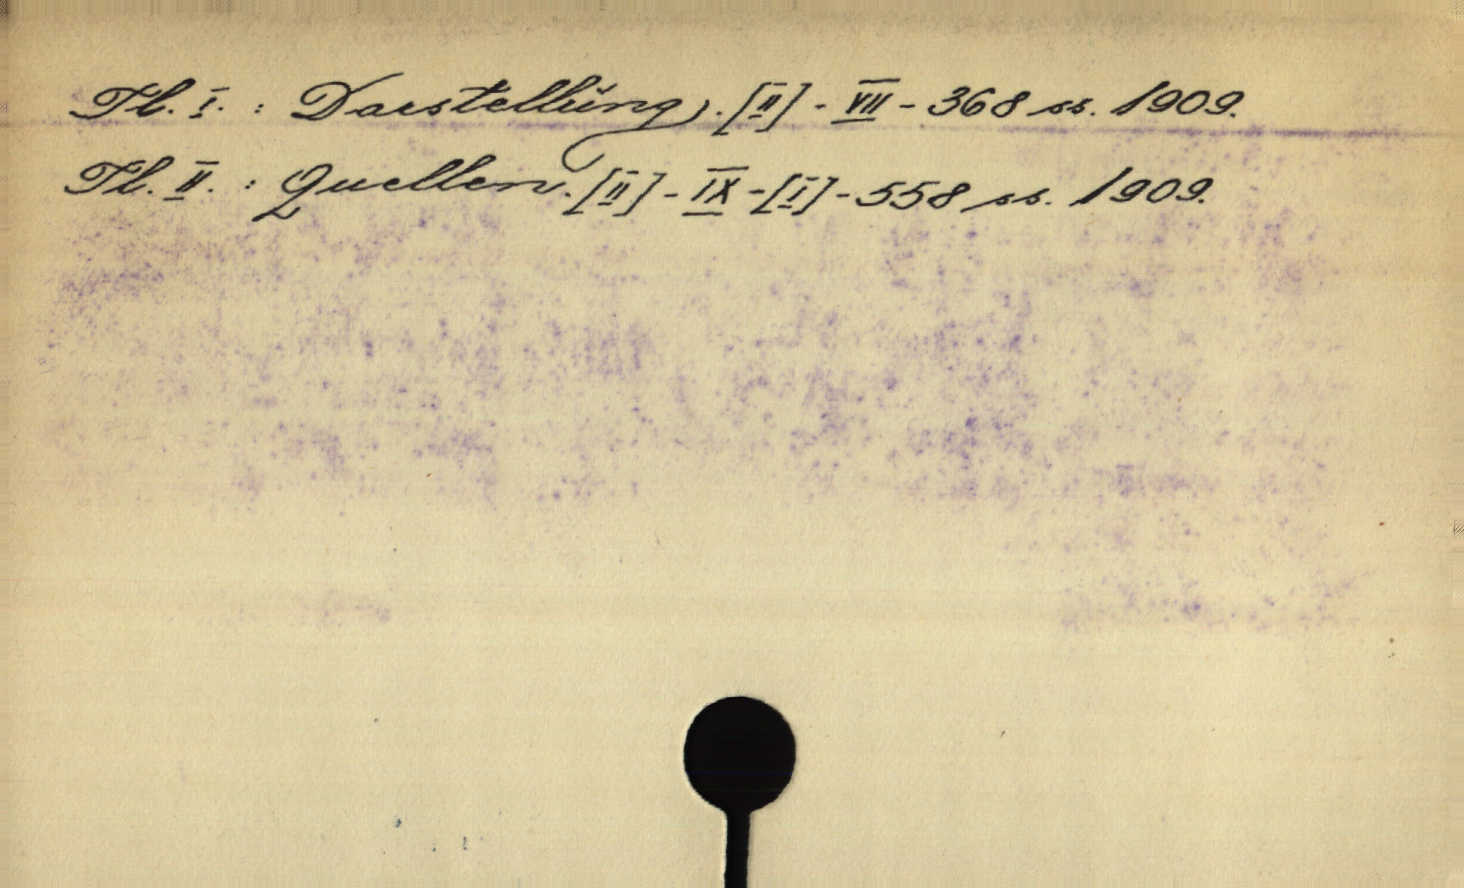 Tl. I. : Darstellung. [II] - VII - 368 ss. 1909.
Tl. II. : Quellen. [II] - IX - [I] - 558 ss. 1909.